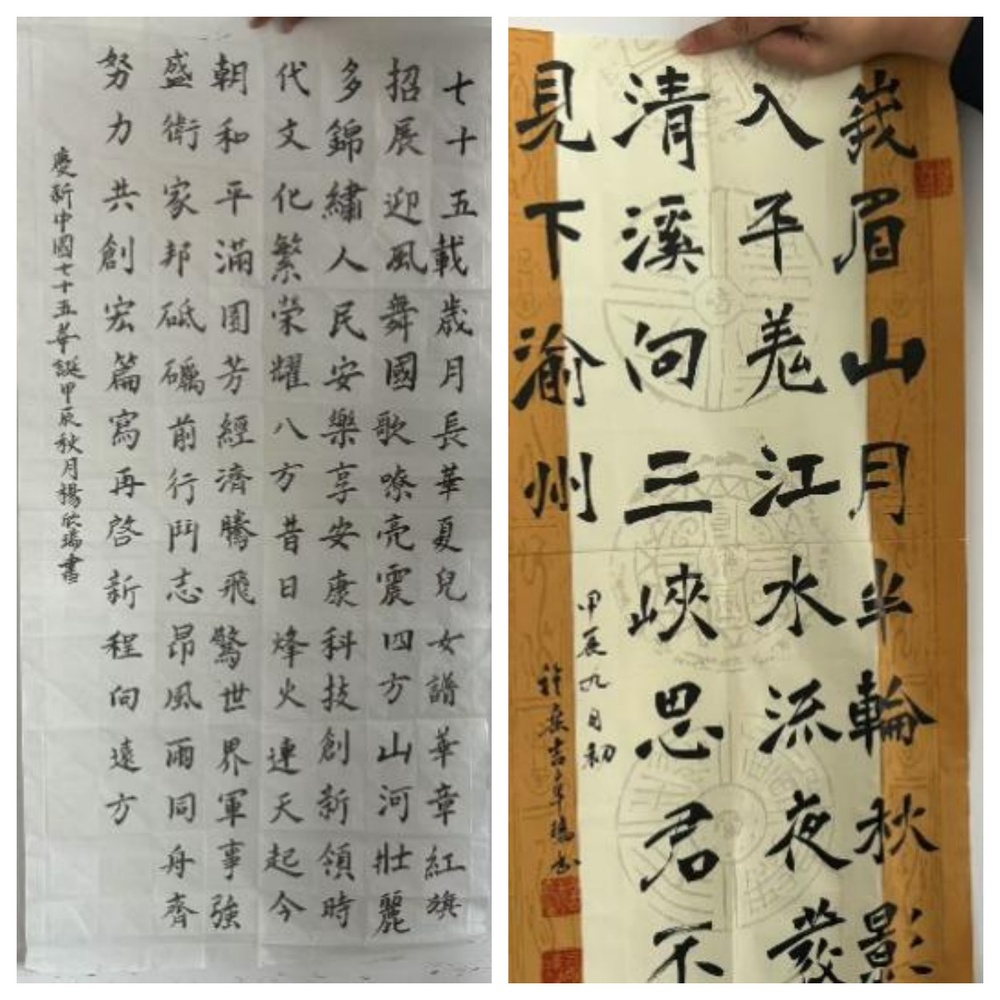 七十五載歲月長華夏兒女譜華章紅旗
招展迎風舞國歌嘹亮震四方山河壯麗
多錦繡人民安樂享安康科技創新領時
代文化繁榮耀八方昔日烽火連天起今
朝和平滿園芳經濟騰飛驚世界軍事強
盛衛家邦砥礪前行鬥志昂風雨同舟齊
努力共創宏篇寫再啓新程向遠方
慶新中國七十五華誕甲辰秋月楊欣瑞書
峩眉山月半輪秋影
入平羌江水流夜發
清溪向三峽思君不
見下渝州
甲辰九月初